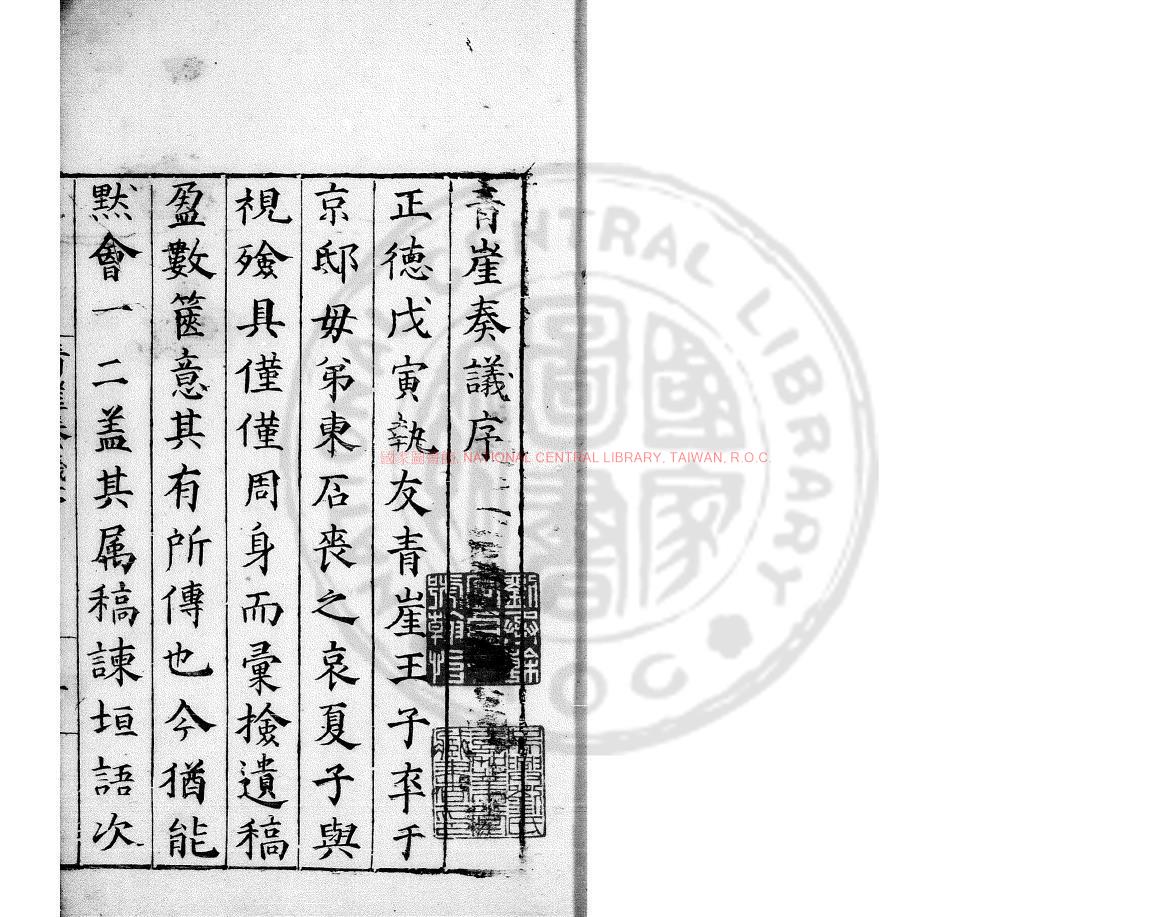 青崖奏議序
正德戊寅執友青崖王子卒于
京邸毋弟東石喪之哀夏子與
視殮具僅僅周身而彙撿遺稿
盈數篋意其有所傳也今猶能
默會一二盖其属稿諫垣語次
國家圖書館, NATIONAL CENTRAL LIBRARY, TAIWAN, R.O.C.
NATIONAL CENTRAL LIBRARY
R.O.C
國家圖書